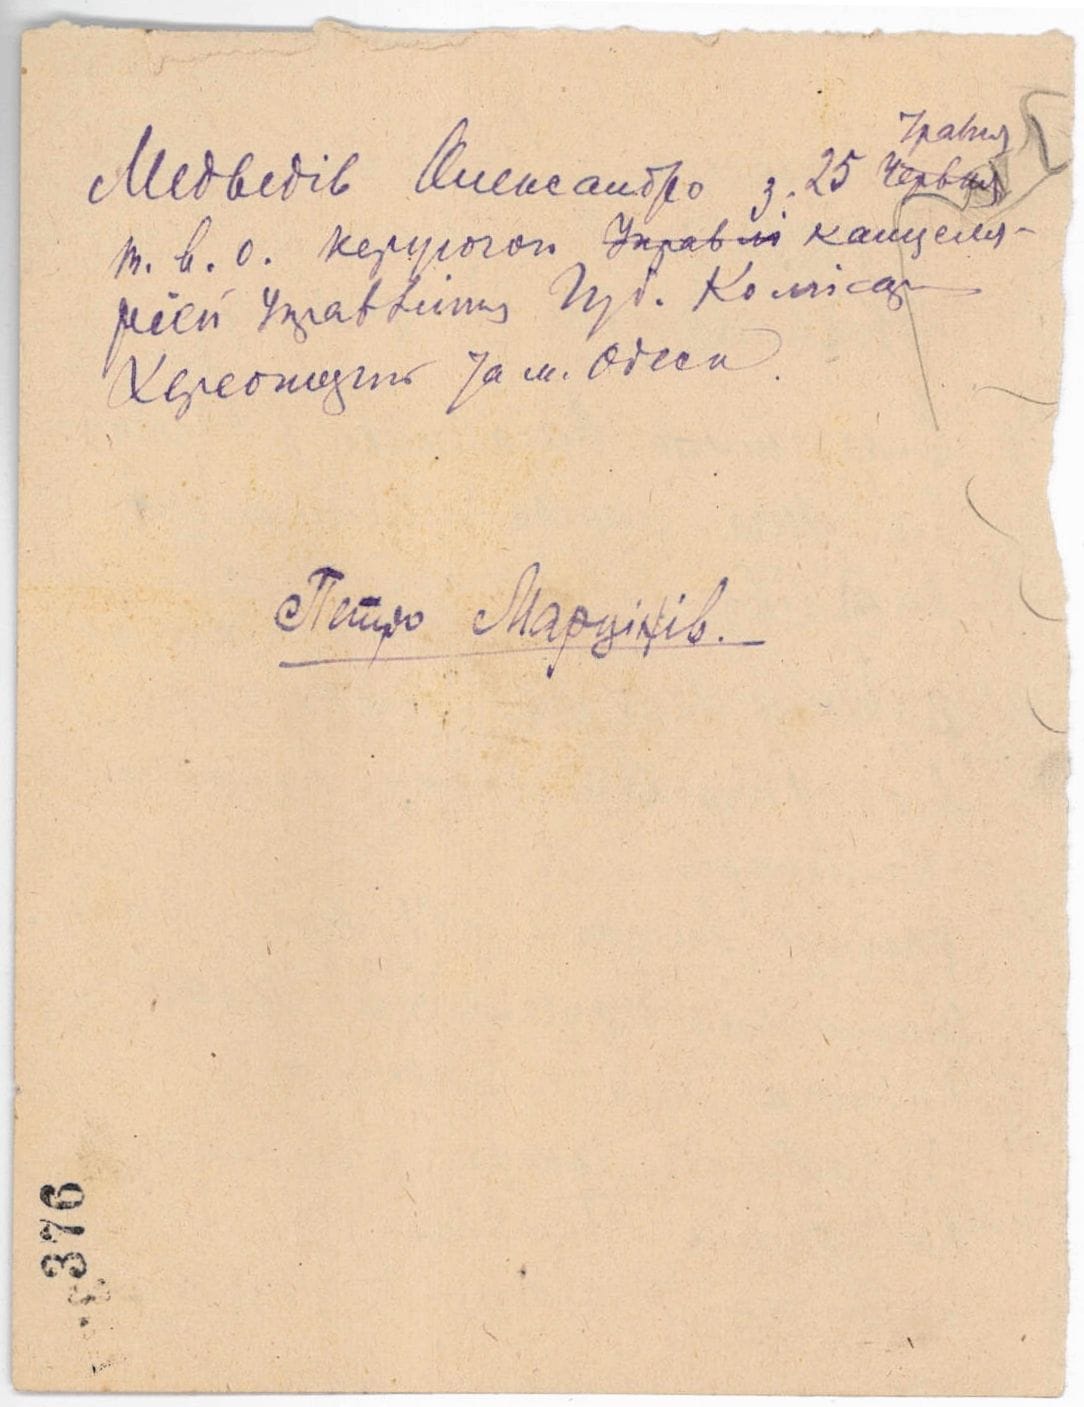 Травня
Медведів Олександро з. 25 Червня
т. в. о. керуючого Управлі канцеля-
рією Управління Губ. Коміса
Херсонщини та м. Одеси.
Петро Марцінів.
376